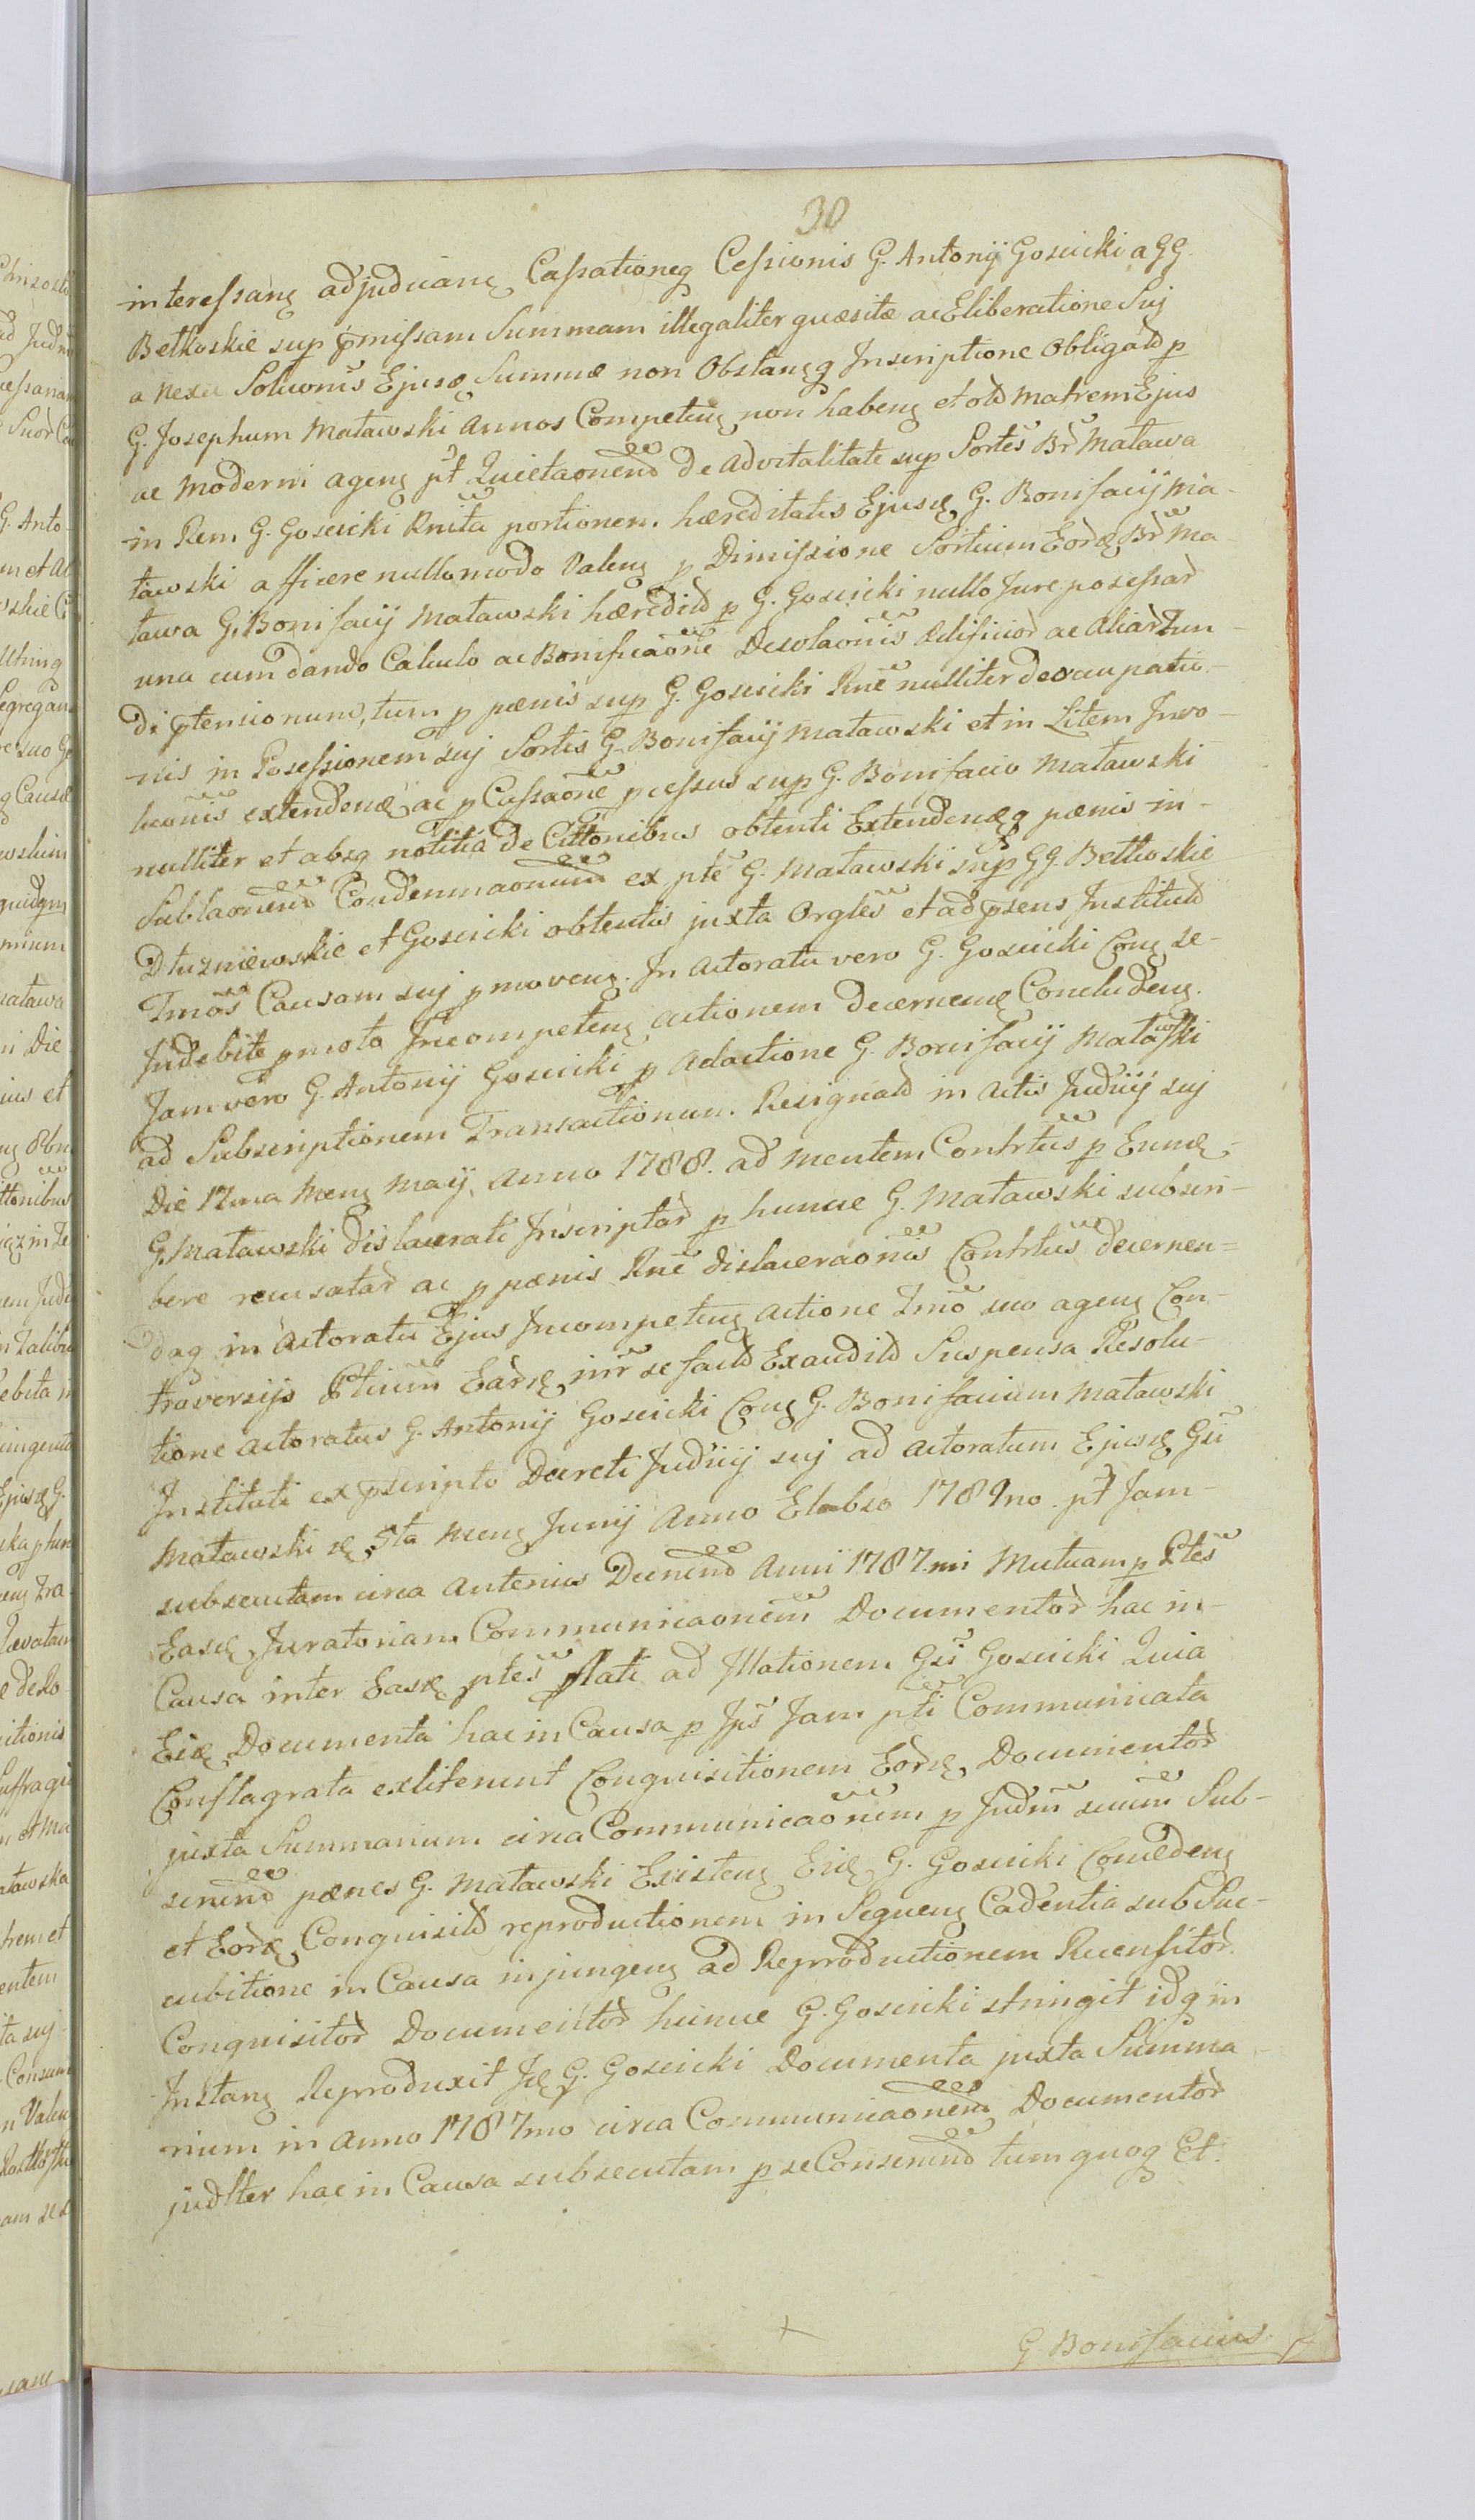 30
interessanç adjudicanç Cassationeq Cessionis G. Antonij Goscicki a GG.
Betkoskie sup pmissam Summam illegaliter quæsitæ ac Eliberatione Suj
a nexu Soluonis Ejusq Summæ non Obstanç q Inscriptione Obligatd p
G. Josephum Matawski Annos Competenç non habenç et old Matrem Ejus
ac Moderni agenç pt Quietaonend de Advitalitate sup Sortes Br Matawa
in Rem G. Goscicki Rnita portionem hæreditatis Ejusq G. Bonifacij Ma-
tawski afficere nullo modo Valenç p Dimissione Sortium Eorq Br Ma-
tawa G. Bonifacij Matawski hæredild p G. Goscicki nullo Jure posessar
una cum dando Calculo ac Bonificaone Desolaonis Ædificior ac Aliar Fun-
di ptensionum, tum p pænis sup G. Goscicki Rne nulliter deocupatio-
nis in Posessionem suj Sortis G. Bonifacij Matawski et in Litem Invo-
lucionis extendenq ac p Cassaone pcessus sup G. Bonifacio Matawski
nulliter et absq notitia de Cittonibus obtenti Extendenq q pænis in-
Sublaonem Condemnaonum ex pte G. Matawski sup GG. Betkoskie
Dłuzniewskie et Goscicki obtentis juxta Orgles et ad psens Institutd
Tmos Causam suj pmovenç. In Actoratu vero G. Goscicki Conç se-
Indebite pmoto Incompetenç actionem decernenç Concludenç.
Jam vero G. Antonij Goscicki p Adactione G. Bonifacij Matawski
ad Subscriptionem Transactionum Resignatd in Actis Judicij suj
Die 17ma Menç Maij Anno 1788. ad mentem Contrtus p Eumq
G. Matawski dislacerati Inscriptar p hunce G. Matawski subscri-
bere recusatar ac p pænis Rne dislaceraonis Contrtus decernen=
daq in Actoratu Ejus Incompetenç actione Tmo suo agenç Con-
troversijs Ptium Earq inr se factd Exaudild Suspensa Resolu-
tione Actoratus G. Antonij Goscicki Conç G. Bonifacium Matawski
Instituti ex pscripto Decreti Judicij suj ad Actoratum Ejusq Gsi
Matawski sç 5ta Menç Junij Anno Elabso 1789no. pt Jam-
subsecutam circa Anterius Decnend Anni 1787.mi Mutuam p Ptes
Easq Juratoriam Communicaonem Documentor hac in-
Causa inter Easq ptes plati ad Illationem Gsi Goscicki Quia
Eiq Documenta hac in Causa p Jps Jam pti Communicata
Conflagrata extiterunt Conquisitionem Eorq Documentor
juxta Summarium circa Communicaonem p Judm suum Sub-
scnend pænes G. Matawski Existenç Eiq G. Goscicki Concedenç
et Eorq Conquisild reproductionem in Sequenç Cadentia sub Suc-
cubitione in Causa injungenç ad Reproductionem Recensitor
Conquisitor Documentor hunce G. Goscicki stringit idq in
Instanç Reproduxit Jq G. Goscicki Documenta juxta Summa-
rium in Anno 1787mo circa Communicaonem Documentor
judlter hac in Causa subsecutam p se Conscnend tum quoq Et.
G Bonifacius